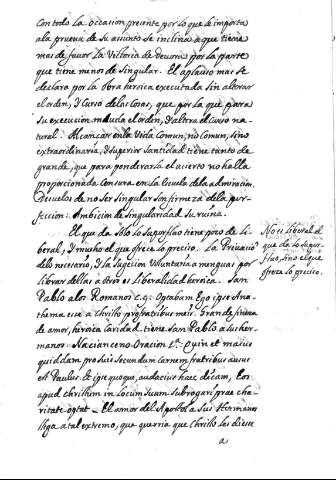 Con todo la occasion presente por lo que le importa
a la prueva de su assunto se inclina a que tiene
mas de favor la Vitoria de devoria por la parte
que tiene menos de singular. El aplauso mas se
declara por la obra heroica executada sin alterar
el orden, y Curso de las Cosas, que por la que para
su execucion muda el orden, y altera el Curso na-
tural. Alcanzar en la Vida Comun, no Comun, sino
extraordinaria, y Superior Santidad tiene tanto de
grande, que para ponderarla el acierto no halla
proporcionada Censura en la escuela de la admiracion.
Desvelos de no ser Singular son firmeza de la per-
feccion: Ambicion de Singularidad su ruina.
El que da Solo lo Superfluo tiene poco de li-
beral, y mucho el que ofrece lo preciso. La Privacion
de lo necesario, y la sugecion Voluntaria a menguas por
librar dellas a otro es liberalidad heroica. San
Pablo a los Romanos c. 9: Optabam Ego ipse Ana-
thema esse a Christo pro fratribus meis. Grande fineza
de amor, heroica Caridad tiene San Pablo a sus her-
manos: Nacianceno Oration 1ª: Quin et maius
quiddam pro suis secundum carnem fratribus ausus
est Paulus. Et ipse quoque, audacius haec dicam, eos
apud Christum in locum suum subrogari prae cha-
ritate optat. El amor del Apostol a sus Hermanos
llega a tal extremo, que querria que Christo les diesse
a
No es liberal el
que da lo super-
fluo, sino el que
ofreze lo preciso.